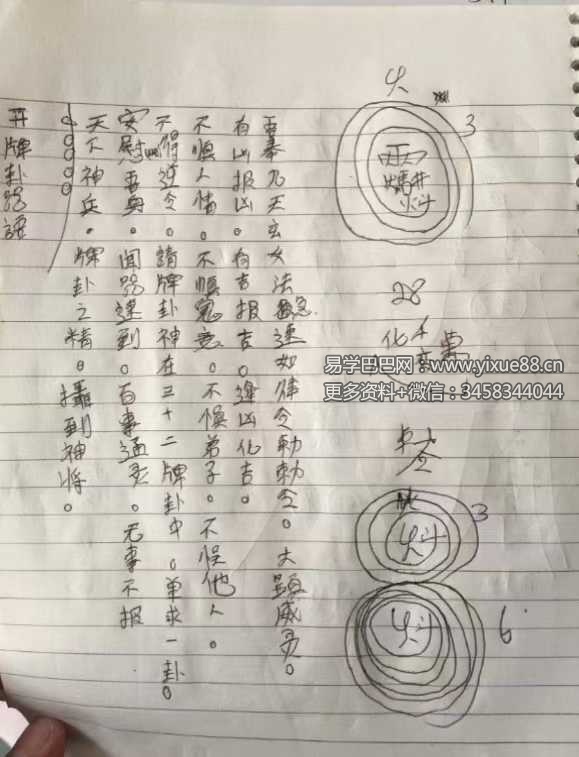 开牌卦咒語
天不神兵。牌卦之精。攝到神将。
安慰 。聞咒速到。百事通灵 无事不报
不得逆令。請牌卦神在三十二牌卦中。单求一卦。
不順人情。不順冤意。不悮弟子。不悮他人。
有凶报凶。有吉报吉。逢凶化吉。
吾奉九天玄女法 急速如律令勅勅令。大顯威灵。
火
3
28
化
令
3
6
易学巴巴网：www.yixue88.cn
更多资料+微信：3458344044